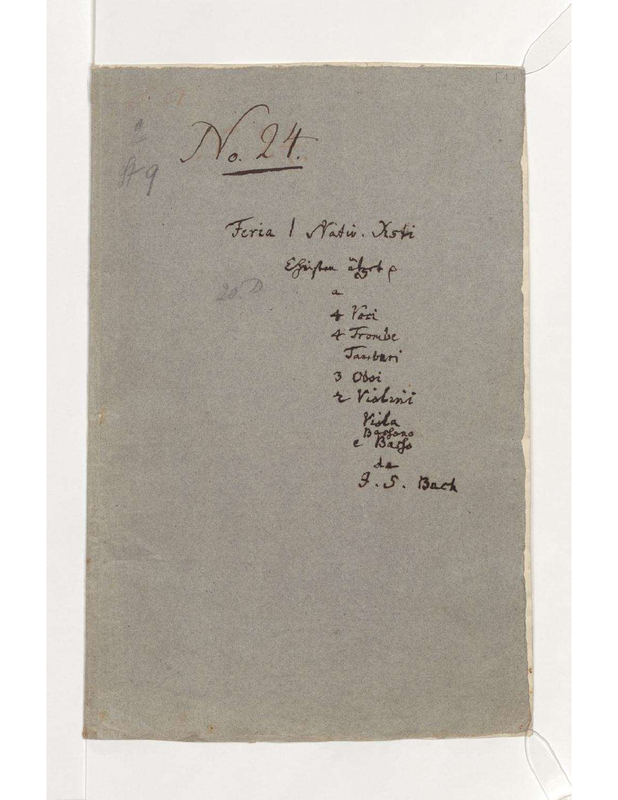 [1]
No. 24.
St 9
Feria 1 Nativ. Xsti
Christen ätzet
20. D
a
4 Voci
4 Trombe
Tamburi
3 Oboi
2 Violini
Viola
Bassono
e Basso
da
J. S. Bach